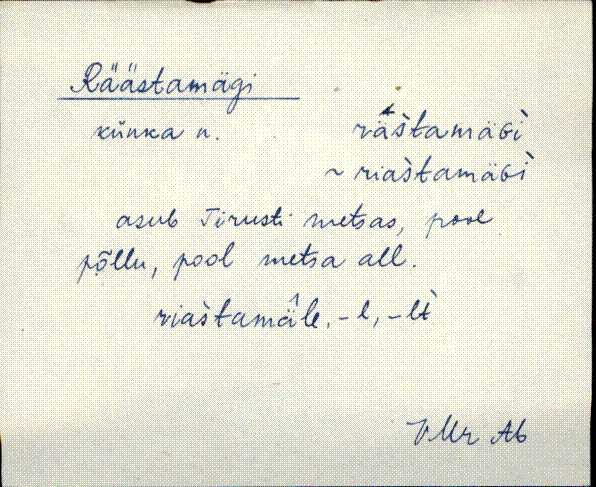 Räästamägi
künka n. rä̭s̀tamäGì
~ rias̀tamäGì
asub Tirusti metsas, pool
põllu, pool metsa all.
rias̀tamä̭le, -l, -lt̀
VMr Ab